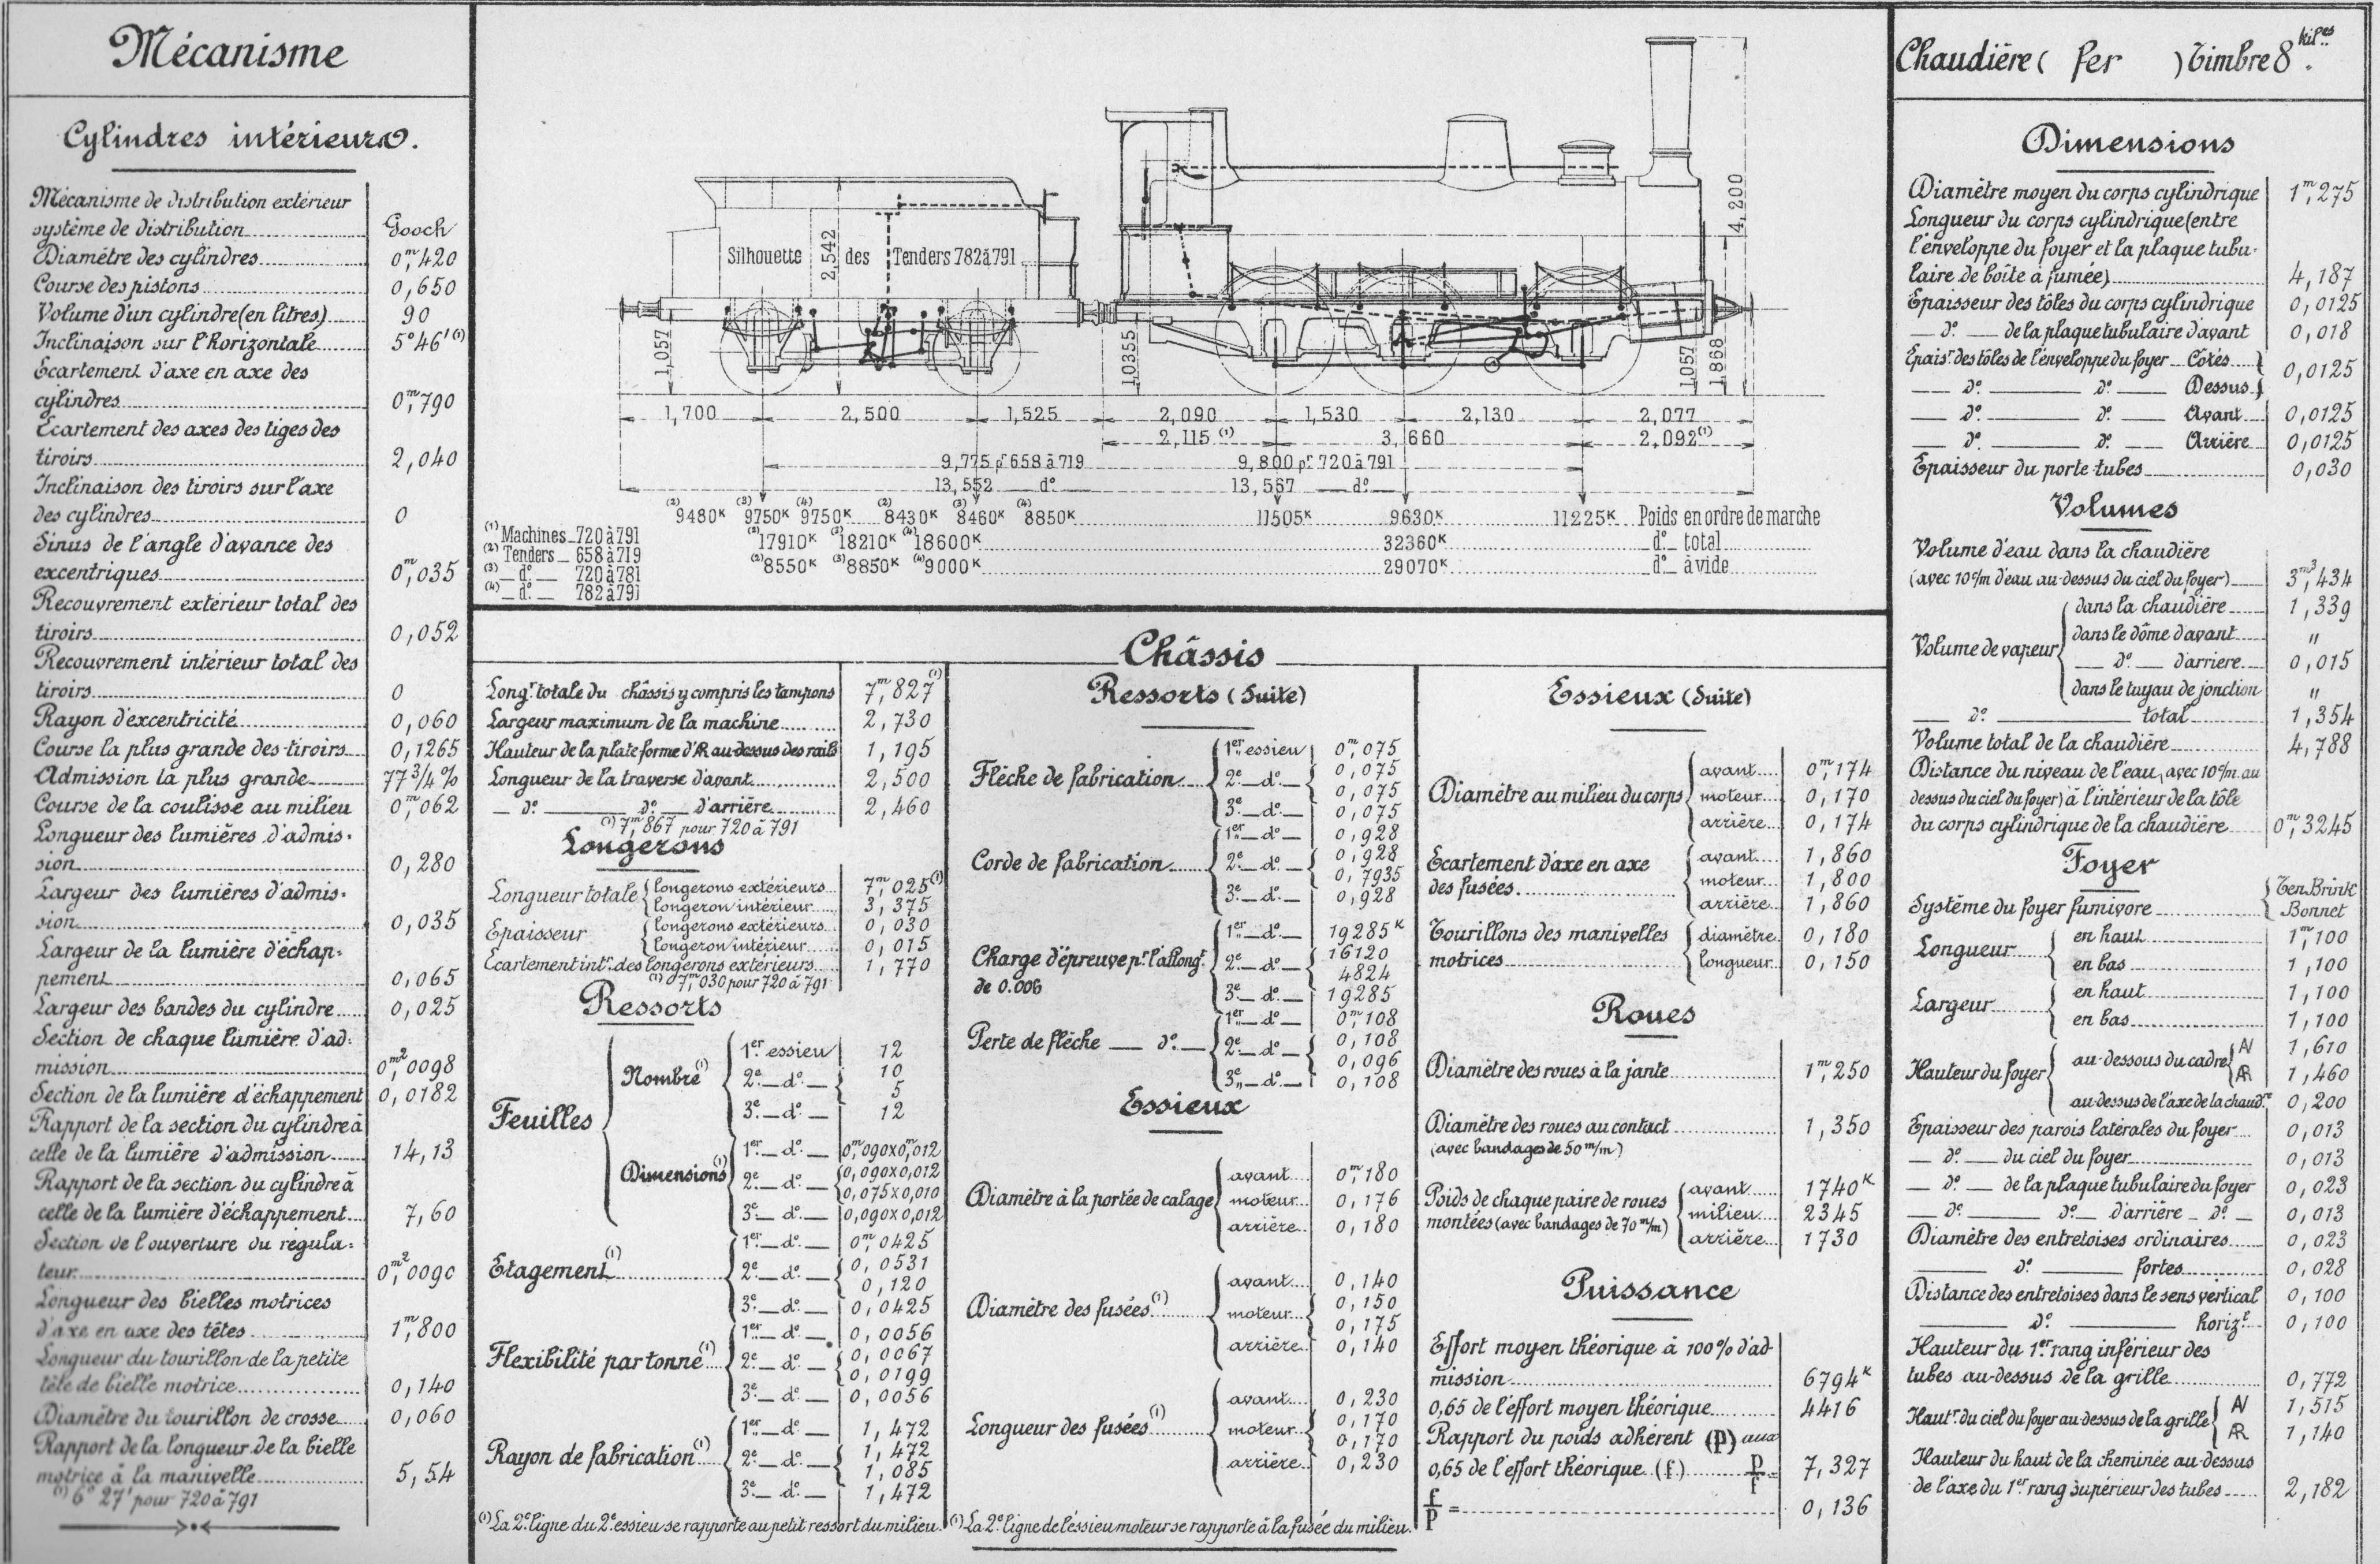 Mécanisme
Cylindres intérieurs.
Mécanisme de distribution extérieur
système de distribution Gooch
Diamètre des cylindres 0,m420
Course des pistons 0,650
Volume d'un cylindre (en litres) 90
Inclinaison sur l'horizontale 5°46' (1)
Ecartement d'axe en axe des
cylindres 0,m790
Ecartement des axes des tiges des
tiroirs 2,040
Inclinaison des tiroirs sur l'axe
des cylindres 0
Sinus de l'angle d'avance des
excentriques 0,m035
Recouvrement extérieur total des
tiroirs 0,052
Recouvrement intérieur total des
tiroirs 0
Rayon d'excentricité 0,060
Course la plus grande des tiroirs 0,1265
Admission la plus grande 77 3/4 %
Course de la coulisse au milieu 0,m062
Longueur des lumières d'admis-
sion 0,280
Largeur des lumières d'admis-
sion 0,035
Largeur de la lumière d'échap-
pement 0,065
Largeur des bandes du cylindre 0,025
Section de chaque lumière d'ad-
mission 0,m²0098
Section de la lumière d'échappement 0,0182
Rapport de la section du cylindre à
celle de la lumière d'admission 14,13
Rapport de la section du cylindre à
celle de la lumière d'échappement 7,60
Section de l'ouverture du régula-
teur 0,m²0090
Longueur des bielles motrices
d'axe en axe des têtes 1,m800
Longueur du tourillon de la petite
tête de bielle motrice 0,140
Diamètre du tourillon de crosse 0,060
Rapport de la longueur de la bielle
motrice à la manivelle 5,54
(1) 6° 27' pour 720 à 791
Silhouette des Tenders 782 à 791
2,542
4,200
1,057
1,0355
1,057
1,868
1,700 2,500 1,525 2,090 1,530 2,130 2,077
2,115 (1) 3,660 2,092 (1)
9,775 pr 658 à 719 9,800 pr 720 à 791
13,552 do 13,567 do
(2) 9480K (3) 9750K (4) 9750K (2) 8430K (3) 8460K (4) 8850K 11505K 9630K 11225K Poids en ordre de marche
(2) 17910K (3) 18210K (4) 18600K 32360K do total
(2) 8550K (3) 8850K (4) 9000K 29070K do à vide
(1) Machines 720 à 791
(2) Tenders 658 à 719
(3) do 720 à 781
(4) do 782 à 791
Châssis
Longr totale du châssis y compris les tampons 7,m827 (1)
Largeur maximum de la machine 2,730
Hauteur de la plate forme d'AR au-dessus des rails 1,195
Longueur de la traverse d'avant 2,500
do do d'arrière 2,460
(1) 7,m867 pour 720 à 791
Longerons
Longueur totale longerons extérieurs 7,m025 (1)
longeron intérieur 3,375
Epaisseur longerons extérieurs 0,030
longeron intérieur 0,015
Ecartement intr des longerons extérieurs 1,770
(1) 7,m030 pour 720 à 791
Ressorts
Feuilles
Nombre (1) 1er essieu 12
2e do 10
5
3e do 12
Dimensions (1) 1er do 0,m090x0,m012
2e do 0,090x0,012
0,075x0,010
3e do 0,090x0,012
Etagement (1) 1er do 0,m0425
2e do 0,0531
0,120
3e do 0,0425
Flexibilité par tonne (1) 1er do 0,0056
2e do 0,0067
0,0199
3e do 0,0056
Rayon de fabrication (1) 1er do 1,472
2e do 1,472
1,085
3e do 1,472
(1) La 2e ligne du 2e essieu se rapporte au petit ressort du milieu.
Ressorts (Suite)
Flèche de fabrication 1er essieu 0,m075
2e do 0,075
0,075
3e do 0,075
Corde de fabrication 1er do 0,928
2e do 0,928
0,7935
3e do 0,928
Charge d'épreuve pr l'allongt
de 0.006
1er do 19285K
2e do 16120
4824
3e do 19285
Perte de flèche do 1er do 0,m108
2e do 0,108
0,096
3e do 0,108
Essieux
Diamètre à la portée de calage avant 0,m180
moteur 0,176
arrière 0,180
Diamètre des fusées (1) avant 0,140
moteur 0,150
0,175
arrière 0,140
Longueur des fusées (1) avant 0,230
moteur 0,170
0,170
arrière 0,230
(1) La 2e ligne de l'essieu moteur se rapporte à la fusée du milieu.
Essieux (Suite)
Diamètre au milieu du corps avant 0,m174
moteur 0,170
arrière 0,174
Ecartement d'axe en axe
des fusées
avant 1,860
moteur 1,800
arrière 1,860
Tourillons des manivelles
motrices
diamètre 0,180
longueur 0,150
Roues
Diamètre des roues à la jante 1,m250
Diamètre des roues au contact 1,350
(avec bandages de 50 m/m)
Poids de chaque paire de roues
montées (avec bandages de 70 m/m)
avant 1740K
milieu 2345
arrière 1730
Puissance
Effort moyen théorique à 100% d'ad-
mission 6794K
0,65 de l'effort moyen théorique 4416
Rapport du poids adhérent (P) aux
0,65 de l'effort théorique (f) P/f = 7,327
f/P = 0,136
Chaudière ( fer ) Timbre 8 kil.es
Dimensions
Diamètre moyen du corps cylindrique 1,m275
Longueur du corps cylindrique (entre
l'enveloppe du foyer et la plaque tubu-
laire de boîte à fumée) 4,187
Epaisseur des tôles du corps cylindrique 0,0125
do de la plaque tubulaire d'avant 0,018
Epaisr des tôles de l'enveloppe du foyer Côtés
do do Dessus 0,0125
do do Avant 0,0125
do do Arrière 0,0125
Epaisseur du porte-tubes 0,030
Volumes
Volume d'eau dans la chaudière
(avec 10 c/m d'eau au-dessus du ciel du foyer) 3,m³434
Volume de vapeur dans la chaudière 1,339
dans le dôme d'avant "
do d'arrière 0,015
dans le tuyau de jonction "
do total 1,354
Volume total de la chaudière 4,788
Distance du niveau de l'eau, avec 10 c/m au
dessus du ciel du foyer) à l'intérieur de la tôle
du corps cylindrique de la chaudière 0,m3245
Foyer
Système du foyer fumivore Ten Brink
Bonnet
Longueur en haut 1,m100
en bas 1,100
Largeur en haut 1,100
en bas 1,100
Hauteur du foyer au-dessous du cadre AV 1,610
AR 1,460
au-dessus de l'axe de la chaud.re 0,200
Epaisseur des parois latérales du foyer 0,013
do du ciel du foyer 0,013
do de la plaque tubulaire du foyer 0,023
do do d'arrière do 0,013
Diamètre des entretoises ordinaires 0,023
do fortes 0,028
Distance des entretoises dans le sens vertical 0,100
do horizt 0,100
Hauteur du 1er rang inférieur des
tubes au-dessus de la grille 0,772
Hautr du ciel du foyer au-dessus de la grille AV 1,515
AR 1,140
Hauteur du haut de la cheminée au-dessus
de l'axe du 1er rang supérieur des tubes 2,182